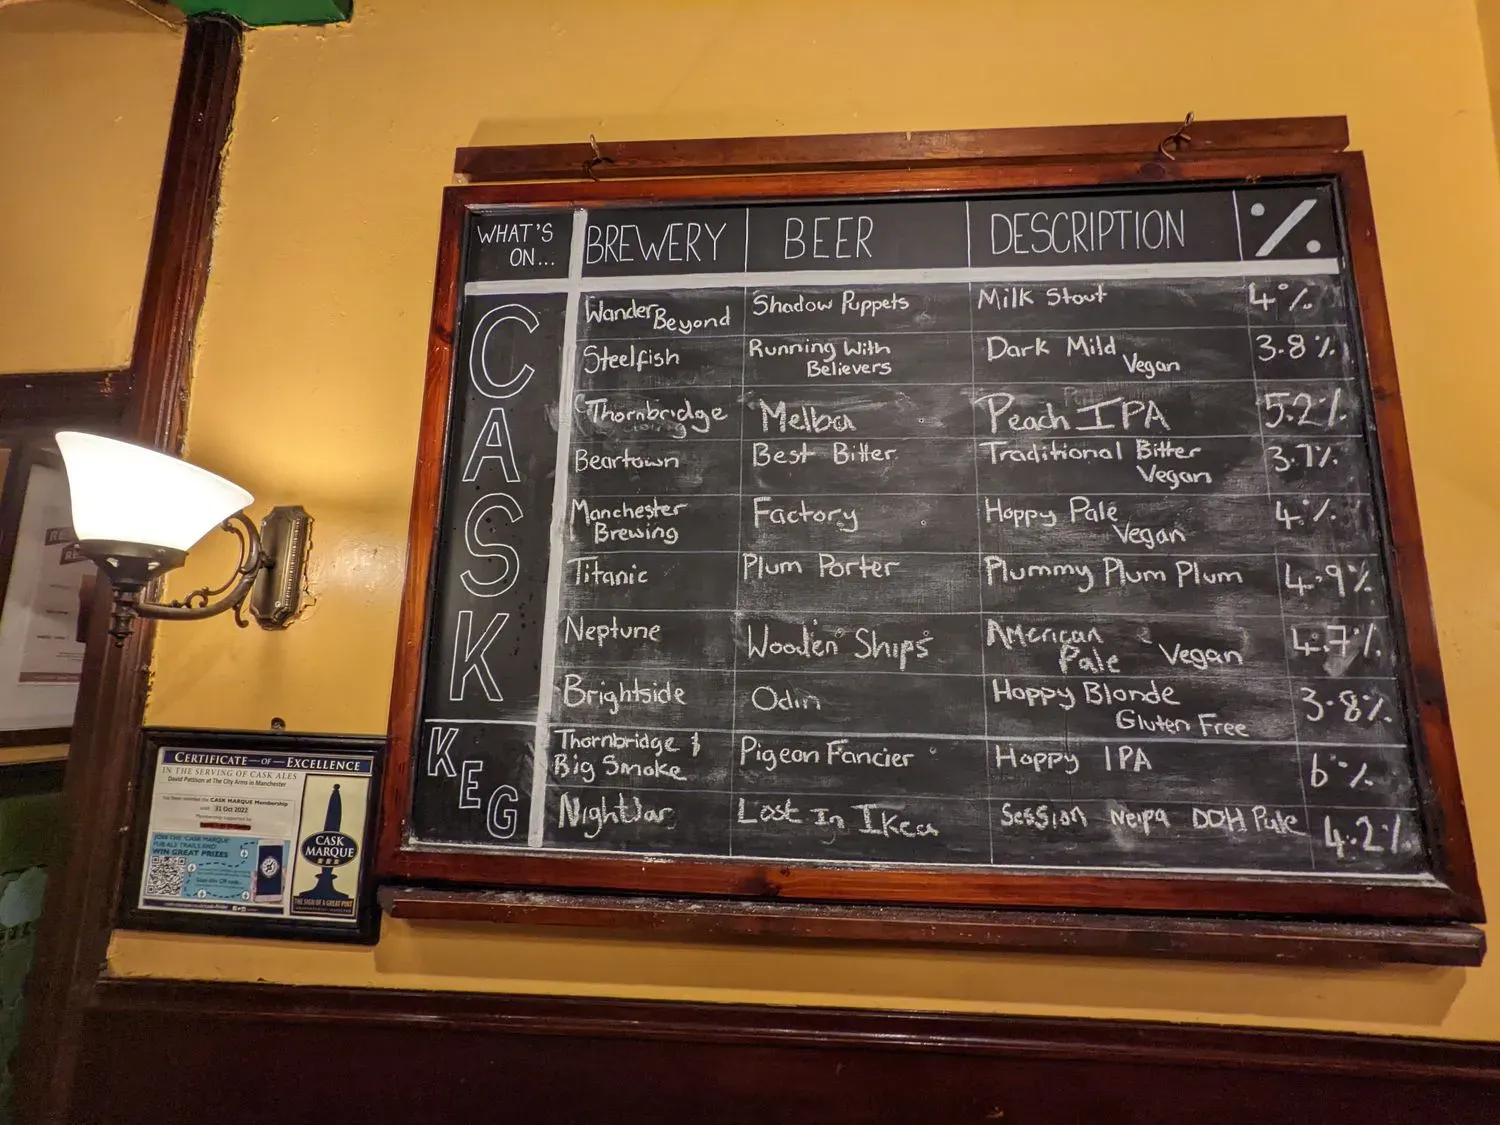 WHAT'S ON... BREWERY BEER DESCRIPTION %
CASK
Wander Beyond Shadow Puppets Milk Stout 4%
Steelfish Running With Believers Dark Mild Vegan 3.8%
Thornbridge Melba Peach IPA 5.2%
Beartown Best Bitter Traditional Bitter Vegan 3.7%
Manchester Brewing Factory Hoppy Pale Vegan 4%
Titanic Plum Porter Plummy Plum Plum 4.9%
Neptune Wooden Ships American Pale Vegan 4.7%
Brightside Odin Hoppy Blonde Gluten Free 3.8%
KEG
Thornbridge & Big Smoke Pigeon Fancier Hoppy IPA 6%
NightJar Lost In Ikea Session Neipa DDH Pale 4.2%
CERTIFICATE OF EXCELLENCE
IN THE SERVING OF CASK ALES
David Pattison at The City Arms in Manchester
has been awarded the CASK MARQUE Membership
until 31 Oct 2022
Membership supported by
JOIN THE CASK MARQUE
PUB ALE TRAILS AND
WIN GREAT PRIZES
CASK
MARQUE
THE SIGN OF A GREAT PINT